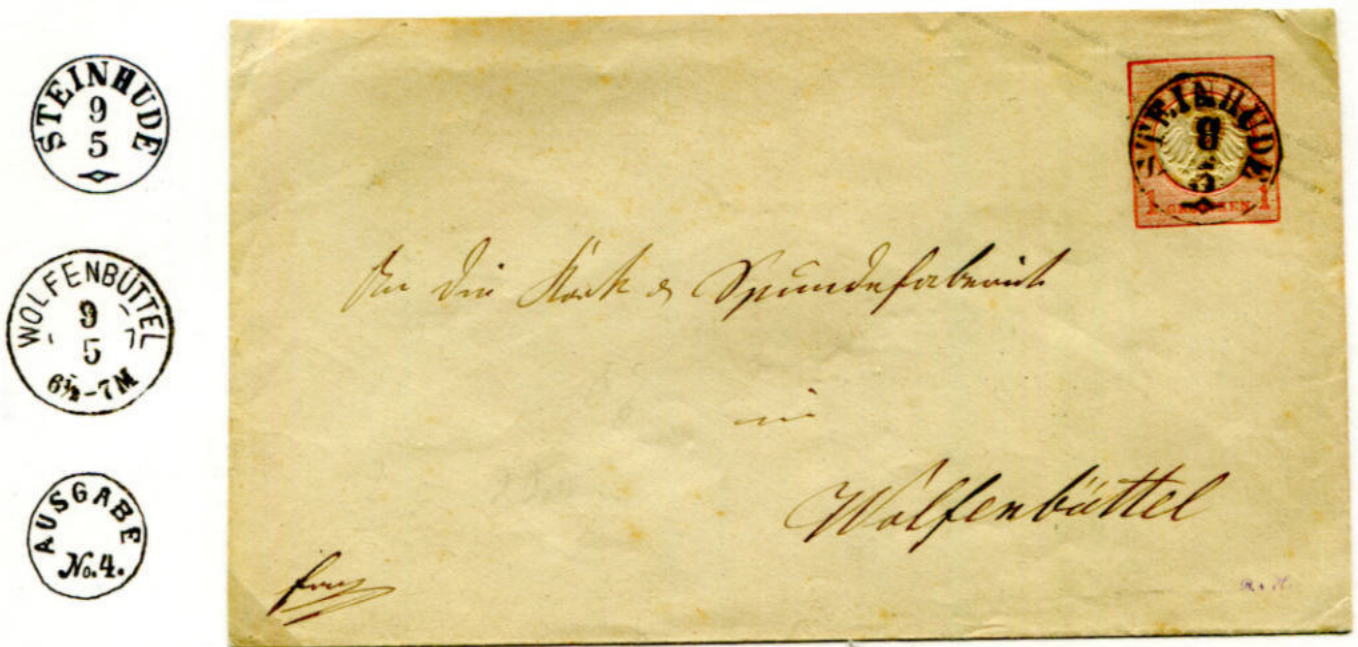 STEINHUDE
9
5
WOLFENBÜTTEL
9
5
6½-7M
AUSGABE
No. 4.
STEINHUDE
9
5
1 GROSCHEN 1
An die Kork & Spundefabrick
in
Wolfenbüttel
R. v. H.